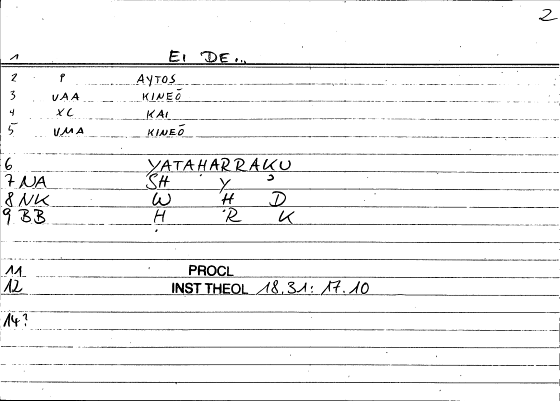 2
1 EI DE...
2 P AYTOS
3 VAA KINEŌ
4 XC KAI
5 VMA KINEŌ
6 YATAḤARRAKU
7 NA SH Y ʾ
8 NK W H D
9 BB Ḥ R K
11 PROCL
12 INST THEOL 18.31: 17.10
14?